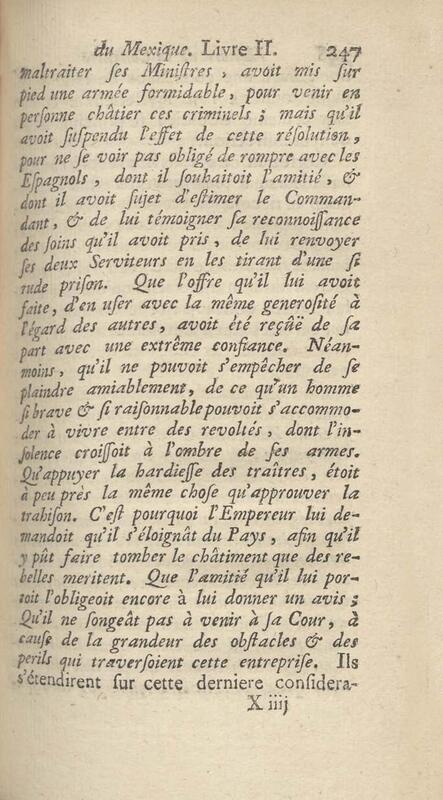 du Mexique. Livre II. 247
maltraiter ſes Miniſtres, avoit mis ſur
pied une armée formidable, pour venir en
perſonne châtier ces criminels; mais qu'il
avoit ſuſpendu l'effet de cette réſolution,
pour ne ſe voir pas obligé de rompre avec les
Eſpagnols, dont il ſouhaitoit l'amitié, &
dont il avoit ſujet d'eſtimer le Comman-
dant, & de lui témoigner ſa reconnoiſſance
des ſoins qu'il avoit pris, de lui renvoyer
ſes deux Serviteurs en les tirant d'une ſi
rude priſon. Que l'offre qu'il lui avoit
faite, d'en uſer avec la même generoſité à
l'égard des autres, avoit été reçûë de ſa
part avec une extrême confiance. Néan-
moins, qu'il ne pouvoit s'empêcher de ſe
plaindre amiablement, de ce qu'un homme
ſi brave & ſi raiſonnable pouvoit s'accommo-
der à vivre entre des revoltés, dont l'in-
ſolence croiſſoit à l'ombre de ſes armes.
Qu'appuyer la hardieſſe des traîtres, étoit
à peu près la même choſe qu'approuver la
trahiſon. C'eſt pourquoi l'Empereur lui de-
mandoit qu'il s'éloignât du Pays, afin qu'il
y pût faire tomber le châtiment que des re-
belles meritent. Que l'amitié qu'il lui por-
toit l'obligeoit encore à lui donner un avis;
Qu'il ne ſongeât pas à venir à ſa Cour, à
cauſe de la grandeur des obſtacles & des
perils qui traverſoient cette entrepriſe. Ils
s'étendirent ſur cette derniere conſidera-
X iiij